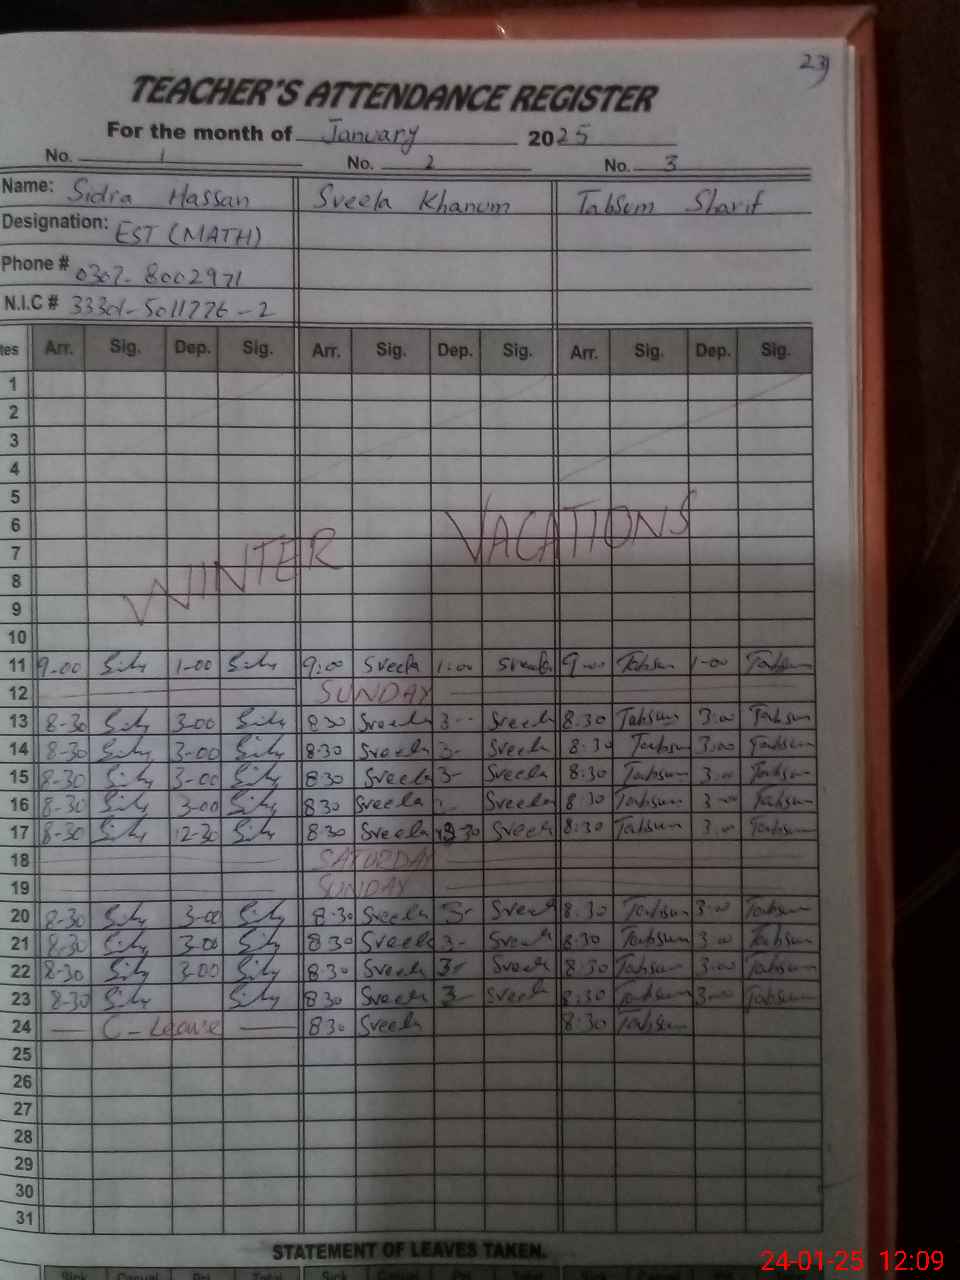 23
TEACHER'S ATTENDANCE REGISTER
For the month of January 2025
No. 1 No. 2 No. 3
Name: Sidra Hassan Sveela Khanum Tabsum Sharif
Designation: EST (MATH)
Phone # 0307-8002971
N.I.C # 33301-5011776-2
tes Arr. Sig. Dep. Sig. Arr. Sig. Dep. Sig. Arr. Sig. Dep. Sig.
1
2
3
4
5
6
7
8
9
10
WINTER VACATIONS
11 9-00 1-00 9:00 Sveela 1:00 Sveela 9-00 Tabsum 1-00 Tabsum
12 SUNDAY
13 8-30 3-00 830 Sveela 3-- Sveela 8.30 Tabsum 3:00 Tabsum
14 8-30 3-00 8.30 Sveela 3- Sveela 8:30 Tabsum 3:00 Tabsum
15 8-30 3-00 830 Sveela 3- Sveela 8:30 Tabsum 3:00 Tabsum
16 8-30 3-00 830 Sveela Sveela 8:30 Tabsum 3-00 Tabsum
17 8-30 12-30 8.30 Sveela Sveela 8:30 Tabsum 3:00 Tabsum
18 SATURDAY
19 SUNDAY
20 8-30 3-00 8.30 Sveela 3- Sveela 8:30 Tabsum 3:00 Tabsum
21 8-30 3-00 830 Sveela 3- Sveela 8:30 Tabsum 3:00 Tabsum
22 8-30 3-00 8.30 Sveela 3- Sveela 8:30 Tabsum 3:00 Tabsum
23 8-30 830 Sveela 3- Sveela 8:30 Tabsum 3-00 Tabsum
24 C-Leave 830 Sveela 8:30 Tabsum
25
26
27
28
29
30
31
STATEMENT OF LEAVES TAKEN.
24-01-25 12:09